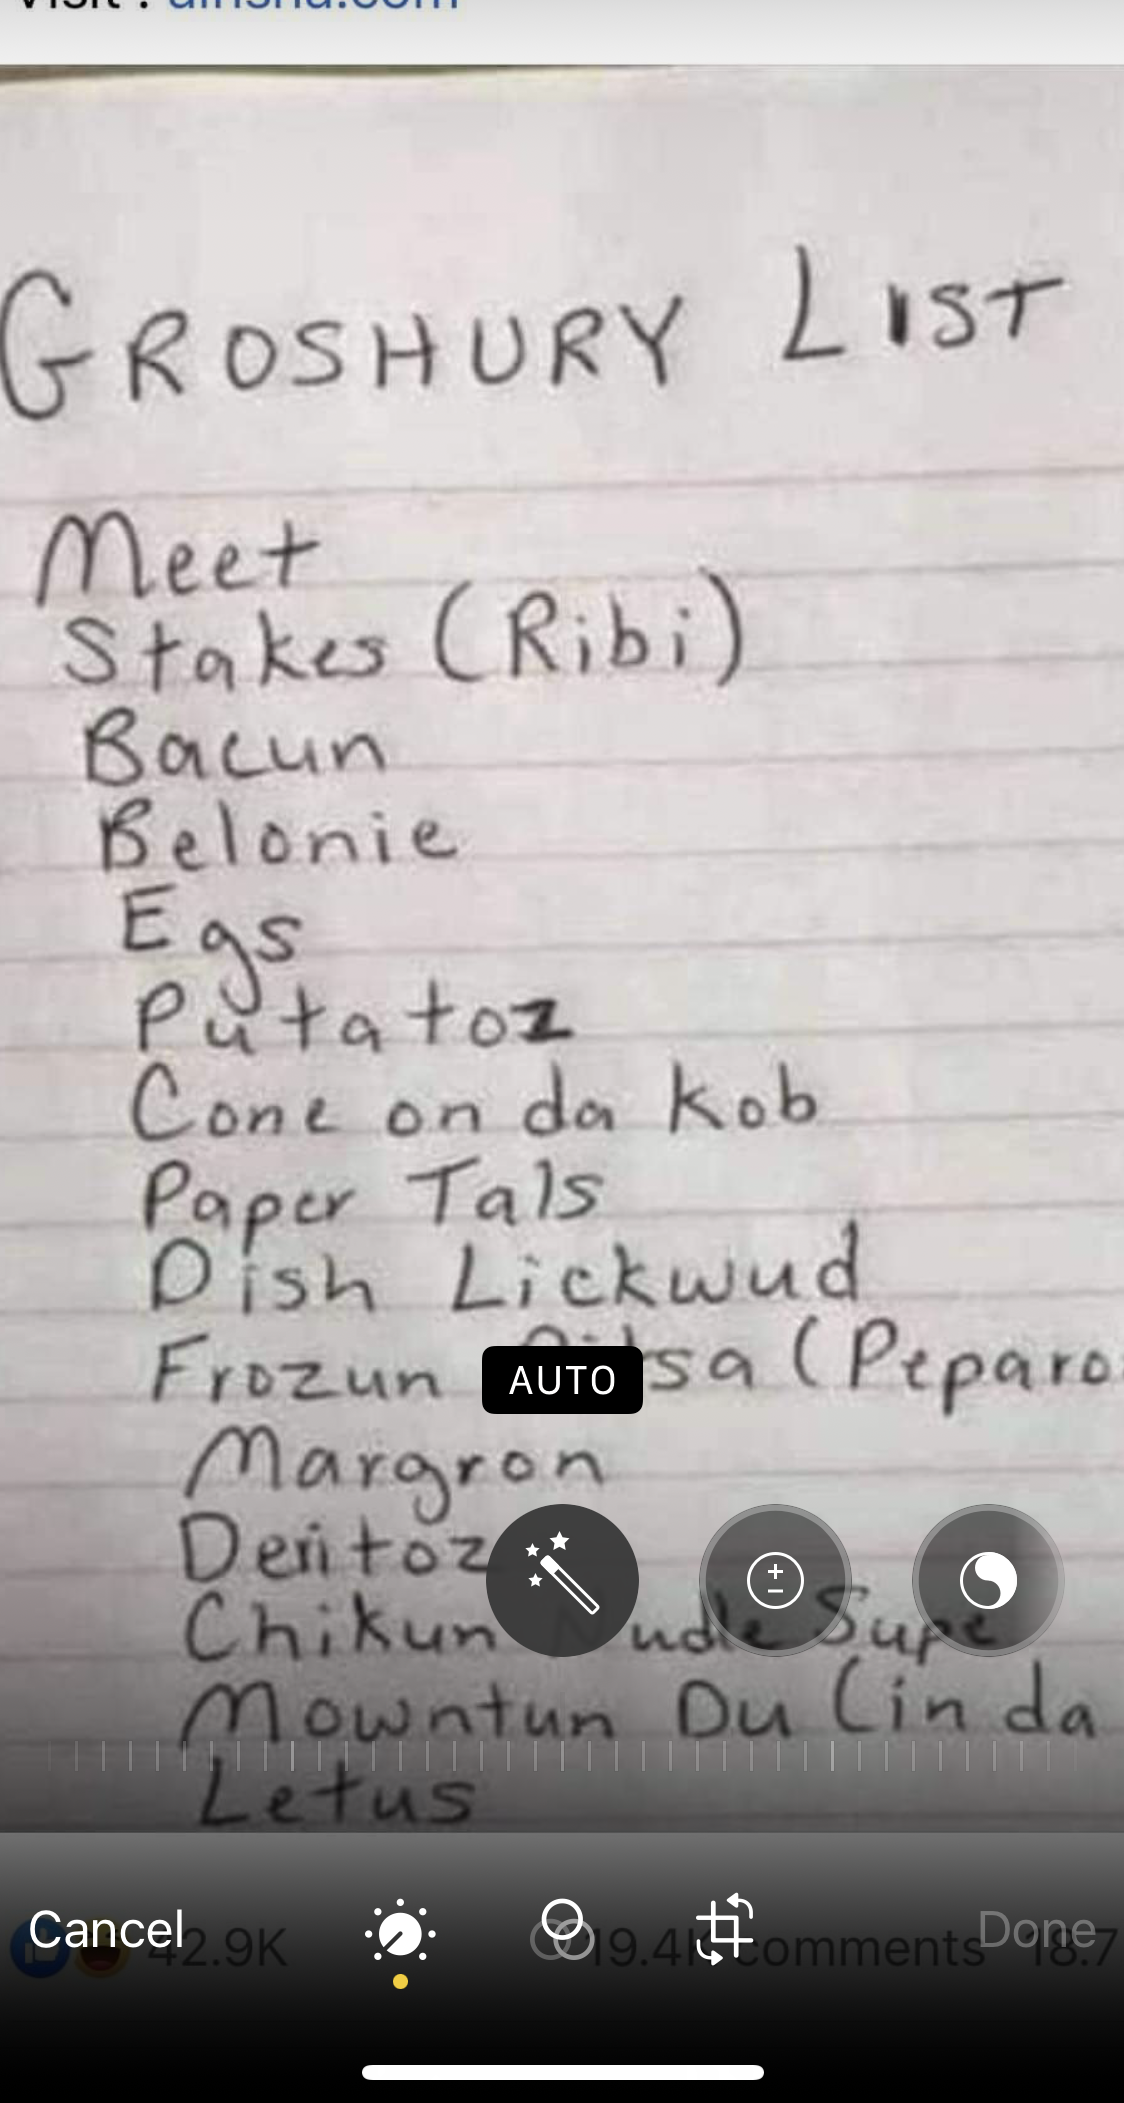 GROSHURY LIST
Meet
Stakes (Ribi)
Bacun
Belonie
Egs
Putatoz
Cone on da Kob
Paper Tals
Dish Lickwud
Frozun (Peparo
AUTO
Margron
Deritoz
Chikun Nudle Supe
Mowntun Du (in da
Letus
Cancel
Done
42.9K 19.4K comments 18.7